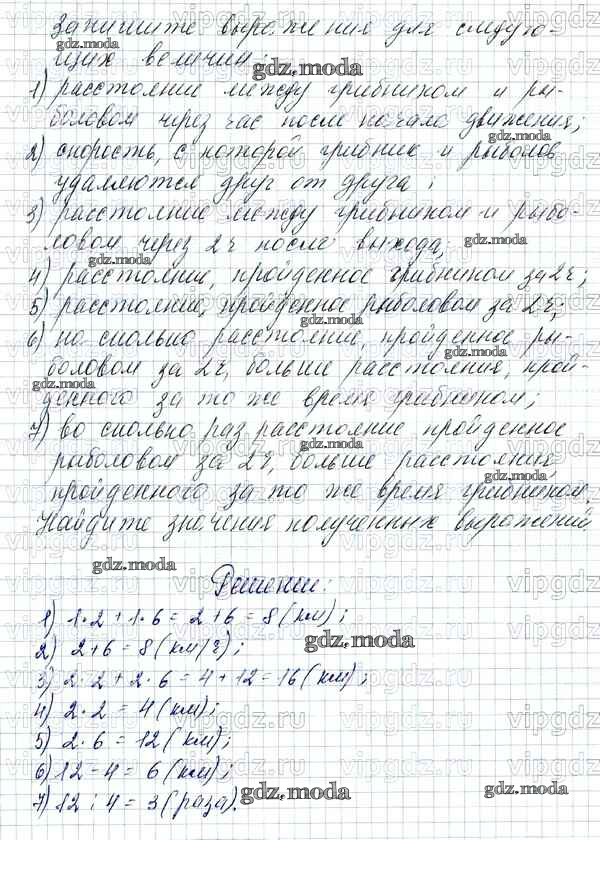 Запишите выражения для следую-
щих величин:
1) расстояние между грибником и ры-
боловом через час после начала движения;
2) скорость, с которой грибник и рыболов
удаляются друг от друга;
3) расстояние между грибником и рыбо-
ловом через 2ч после выхода;
4) расстояние, пройденное грибником за 2ч;
5) расстояние, пройденное рыболовом за 2ч;
6) на сколько расстояние, пройденное ры-
боловом за 2ч, больше расстояния, прой-
денного за то же время грибником;
7) во сколько раз расстояние пройденное
рыболовом за 2ч, больше расстояния
пройденного за то же время грибником.
Найдите значения полученных выражений
Решение:
1) 1·2 + 1·6 = 2 + 6 = 8 (км);
2) 2+6 = 8 (км/ч);
3) 2·2 + 2·6 = 4 + 12 = 16 (км);
4) 2·2 = 4 (км);
5) 2·6 = 12 (км);
6) 12 - 4 = 6 (км);
7) 12 : 4 = 3 (раза).
gdz.moda
vipgdz.ru